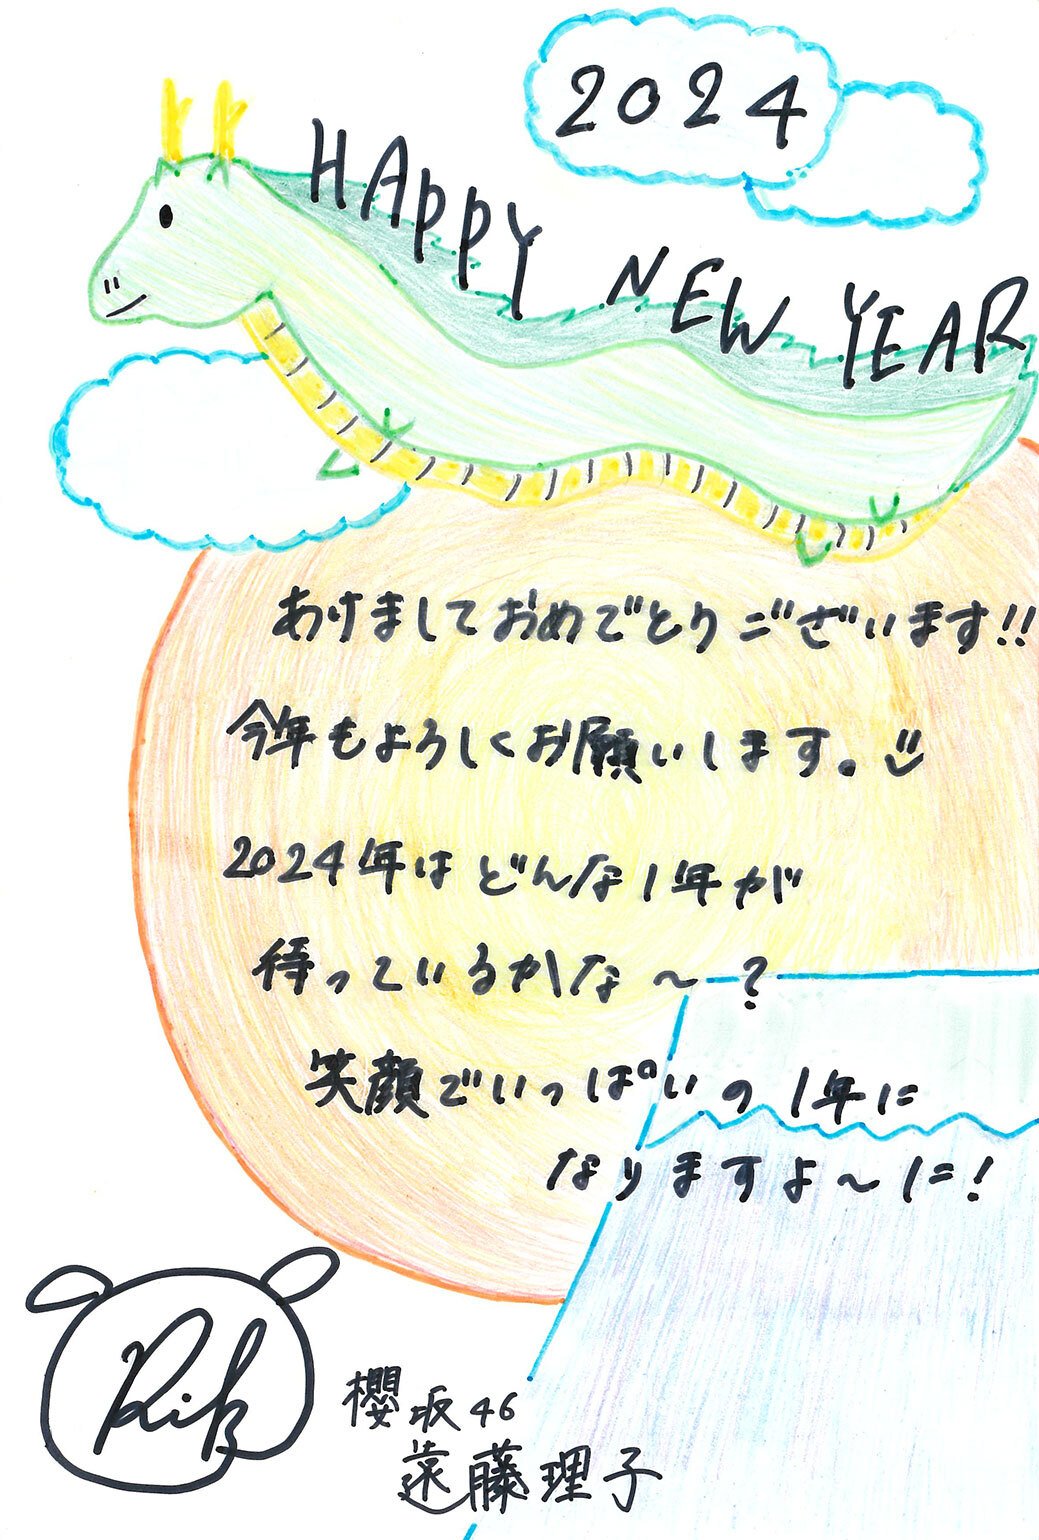 2024
HAPPY NEW YEAR
あけましておめでとうございます!!
今年もよろしくお願いします。
2024年はどんな1年が
待っているかな～?
笑顔でいっぱいの1年に
なりますよ～に!
櫻坂46
遠藤理子